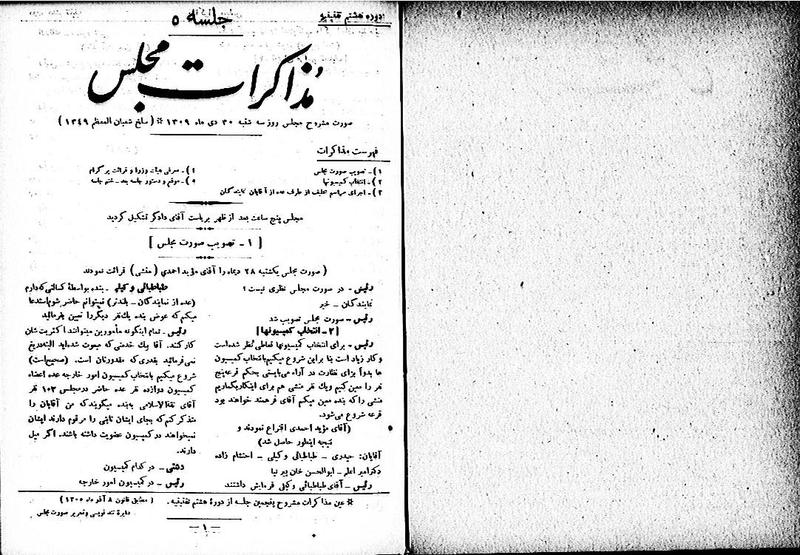 دوره هشتم تقنینیه
جلسه ۵
مذاکرات مجلس
صورت مشروح مجلس روز سه شنبه ۳۰ دی ماه ۱۳۰۹ * (سلخ شعبان المعظم ۱۳۴۹)
فهرست مذاکرات
۱) ـ تصویب صورت مجلس
۲) ـ انتخاب کمیسیونها
۳) ـ اجرای مراسم تحلیف از طرف عده از آقایان نمایندگان
۴) ـ معرفی هیأت وزراء و قرائت پرگرام
۵) ـ موقع و دستور جلسه بعد ـ ختم جلسه
مجلس پنج ساعت بعد از ظهر بریاست آقای دادگر تشکیل گردید
[ ۱ ـ تصویب صورت مجلس ]
(صورت مجلس یکشنبه ۲۸ دیماه را آقای مؤید احمدی (منشی) قرائت نمودند
رئیس ـ در صورت مجلس نظری نیست؟
نمایندگان ـ خیر
رئیس ـ صورت مجلس تصویب شد
[ ۲ ـ انتخاب کمیسیونها ]
رئیس ـ برای انتخاب کمیسیونها تعاطی نظر شده است
و کار زیاد است بنا بر این شروع میکنیم بانتخاب کمیسیون
ها بدواً برای نظارت در آراء می‌بایستی بحکم قرعه پنج
نفر را معین کنیم ویک نفر منشی هم برای اینکار بگماریم
منشی را که بنده معین میکنم آقای فرهمند خواهند بود
قرعه شروع می‌شود.
(آقای مؤید احمدی اقتراع نمودند و
نتیجه اینطور حاصل شد)
آقایان: حیدری ـ طباطبائی وکیلی ـ احتشام زاده
دکتر امیر اعلم ـ ابوالحسن خان پیر نیا
رئیس ـ آقای طباطبائی وکیلی فرمایشی داشتند
طباطبائی وکیلی ـ بنده بواسطهٔ کسالتی که دارم
(عده از نمایندگان ـ بلندتر) نمیتوانم حاضر شوم استدعا
میکنم که عوض بنده یک نفر دیگر را تعیین بفرمائید
رئیس ـ تمام اینگونه مأمورین میتوانند اکثریت شان
کار کنند. آقا یک خدمتی که مبعوث شده‌اید البته دریغ
نمی‌فرمائید بقدری که مقدورتان است. (صحیح است)
شروع میکنیم بانتخاب کمیسیون امور خارجه عده اعضاء
کمیسیون دوازده نفر عده حاضر در مجلس ۱۰۳ نفر
آقای ثقة‌الاسلامی به‌بنده میگویند که من آقایان را
متذکر کنم که بجای ایشان نایبی را مرقوم دارند ایشان
نمیخواهند در کمیسیون عضویت داشته باشند. اگر میل
دارند.
دشتی ـ در کدام کمیسیون
رئیس ـ در کمیسیون امور خارجه
* عین مذاکرات مشروح پنجمین جلسه از دورهٔ هشتم تقنینیه. (مطابق قانون ۸ آذر ماه ۱۳۰۵)
دایرهٔ تند نویسی و تحریر صورت مجلس
ـ ۱ ـ